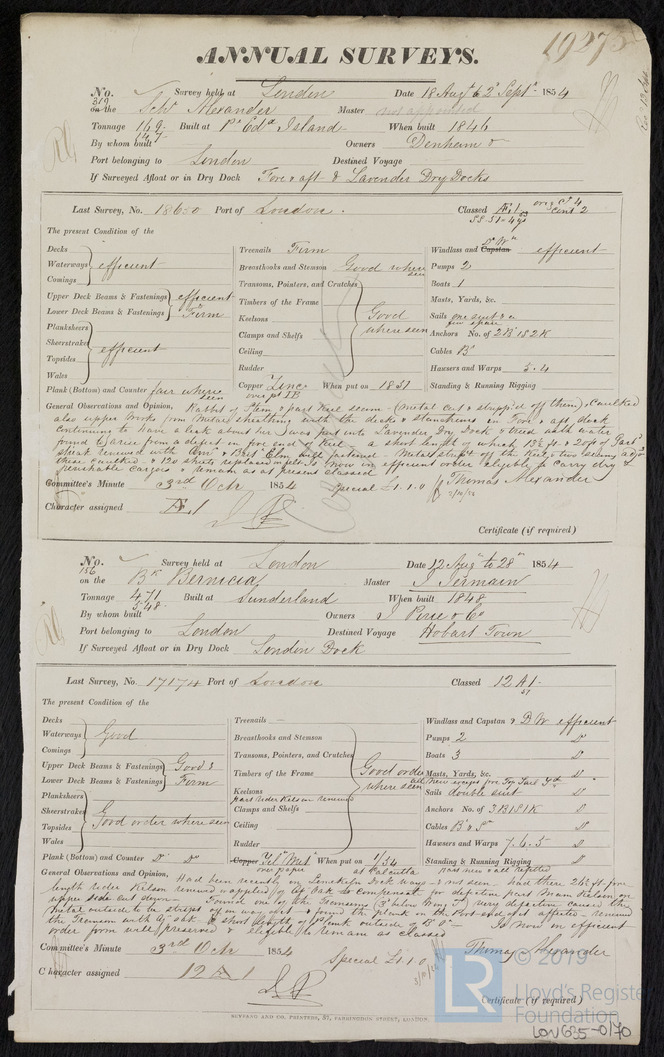 19275
ANNUAL SURVEYS.
No. 319 Survey held at London Date 18 Augt & 2d Septr 1854
on the Schr Alexander Master not appointed
Tonnage 169 147 Built at Pr Edd Island When built 1846
By whom built Owners Denham &
Port belonging to London Destined Voyage
If Surveyed Afloat or in Dry Dock Fore & aft & Lavender Dry Docks
Last Survey, No. 18650 Port of London. Classed Æ 1
The present Condition of the
Decks
Waterways efficient
Comings
Upper Deck Beams & Fastenings efficient
Lower Deck Beams & Fastenings Firm
Planksheers
Sheerstrakes
Topsides efficient
Wales
Plank (Bottom) and Counter fair where seen
Treenails Firm
Breasthooks and Stemson Good where seen
Transoms, Pointers, and Crutches
Timbers of the Frame
Keelsons Good where seen
Clamps and Shelfs
Ceiling
Rudder
Copper Zinc over pt IB When put on 1851
Windlass and Capstan efficient
Pumps 2
Boats 1
Masts, Yards, &c.
Sails one suit &
few spare
Anchors No. of 2B 1S 2K
Cables Bd
Hawsers and Warps 5.4
Standing & Running Rigging
General Observations and Opinion, Rabbet of Stem & part Keel seam (Metal cut & stripped off them), Caulked
also upper works from Metal sheathing with the decks & stanchions in fore & aft dock
continuing to have a leak about her was put into Lavender Dry Dock & tried with water
found to arise from a defect in fore end of Keel, a short length of which
streak renewed with Amn & Brit Elm well fastened - Metal stript off the Keel & two seams
these caulked & 120 sheets replaced on felt. Is now in efficient order eligible to carry dry &
perishable cargoes & remain as at present classed
Committee's Minute 3rd Octr 1854 Special £1.1.0 Thomas Alexander
Character assigned Æ 1
Certificate (if required)
No. 156 Survey held at London Date 12 Augt to 28th 1854
on the Bk Bernicia Master J Jermain
Tonnage 471 548 Built at Sunderland When built 1848
By whom built Owners J Pirie & Co
Port belonging to London Destined Voyage Hobart Town
If Surveyed Afloat or in Dry Dock London Dock
Last Survey, No. 17174 Port of London Classed 12 A1
57
The present Condition of the
Decks
Waterways Good
Comings
Upper Deck Beams & Fastenings Good &
Lower Deck Beams & Fastenings Firm
Planksheers
Sheerstrakes
Topsides Good order where seen
Wales
Plank (Bottom) and Counter Do Do
Treenails —
Breasthooks and Stemson
Transoms, Pointers, and Crutches
Timbers of the Frame Good order
where seen
Keelsons
part rider Kelson renewed
Clamps and Shelfs
Ceiling
Rudder
Copper Yel Metl over paper When put on 1/54
at Calcutta
Windlass and Capstan & DW efficient
Pumps 2 Do
Boats 3 Do
Masts, Yards, &c. Do
New except fore Top Sail Yd
Sails double suit Do
Anchors No. of 3B 1S 1K Do
Cables Bd & Sm Do
Hawsers and Warps 7.6.5 Do
Standing & Running Rigging
part new & all refitted
General Observations and Opinion, Had been recently in Limekiln Dock ways & not seen. Had there 24½ ft fore
length rider Kelson renewed & applied of Af Oak to compensate for defective part Main Kelson on
upper side cut down. Found one of the Transoms very defective caused the
metal outside to be stript on wing aft & found the plank on the Port end of it affected - renewed
the Transom with Af Oak & short length of plank outside of B O Is now in efficient
order form well preserved & eligible to remain as classed
Committee's Minute 3rd Octr 1854 Special £1.1.0 Thomas Alexander
Character assigned 12 A 1
Certificate (if required)
SEYFANG AND CO. PRINTERS, 57, FARRINGDON STREET, LONDON.
© 2019
LR Lloyd's Register
Foundation
LON635-0170